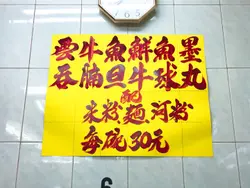 雲牛魚鮮魚墨
吞腩旦牛球丸
配
米粉麵河粉
每碗30元
6